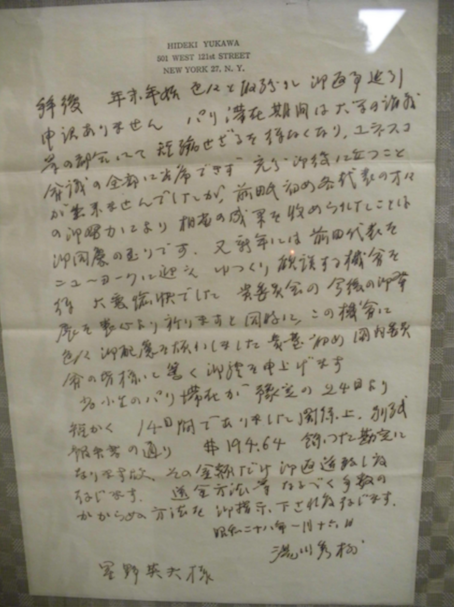 HIDEKI YUKAWA
501 WEST 121st STREET
NEW YORK 27, N. Y.
拝復 年末年始 色々と取紛れ 御返事遅引
申訳ありません パリ滞在期間は大学の講義
等の都合にて短縮せざるを得なくなり、ユネスコ
会議の全部に出席できず 充分御役に立つこと
が出来ませんでしたが、前田氏初め各代表の方々
の御努力により 相当の成果を収められたことは
御同慶の至りです。又新年には前田代表を
ニューヨークに迎え ゆっくり歓談する機会を
得 大変愉快でした 貴委員会の今後の御発
展を衷心より祈りますと同時に、この機会に
色々御配慮を煩わしました貴臺初め国内委員
会の皆様に篤く御礼を申上げます
尚小生のパリ滞在が豫定の24日より
短かく 14日間でありました関係上、別紙
報告書の通り $194.64 餘つた勘定に
なります その金額だけ御返送致し度
存じます。 送金方法等なるべく手数の
かからぬ方法を御指示下され度存じます。
昭和二十八年一月十六日
湯川秀樹
星野英夫様